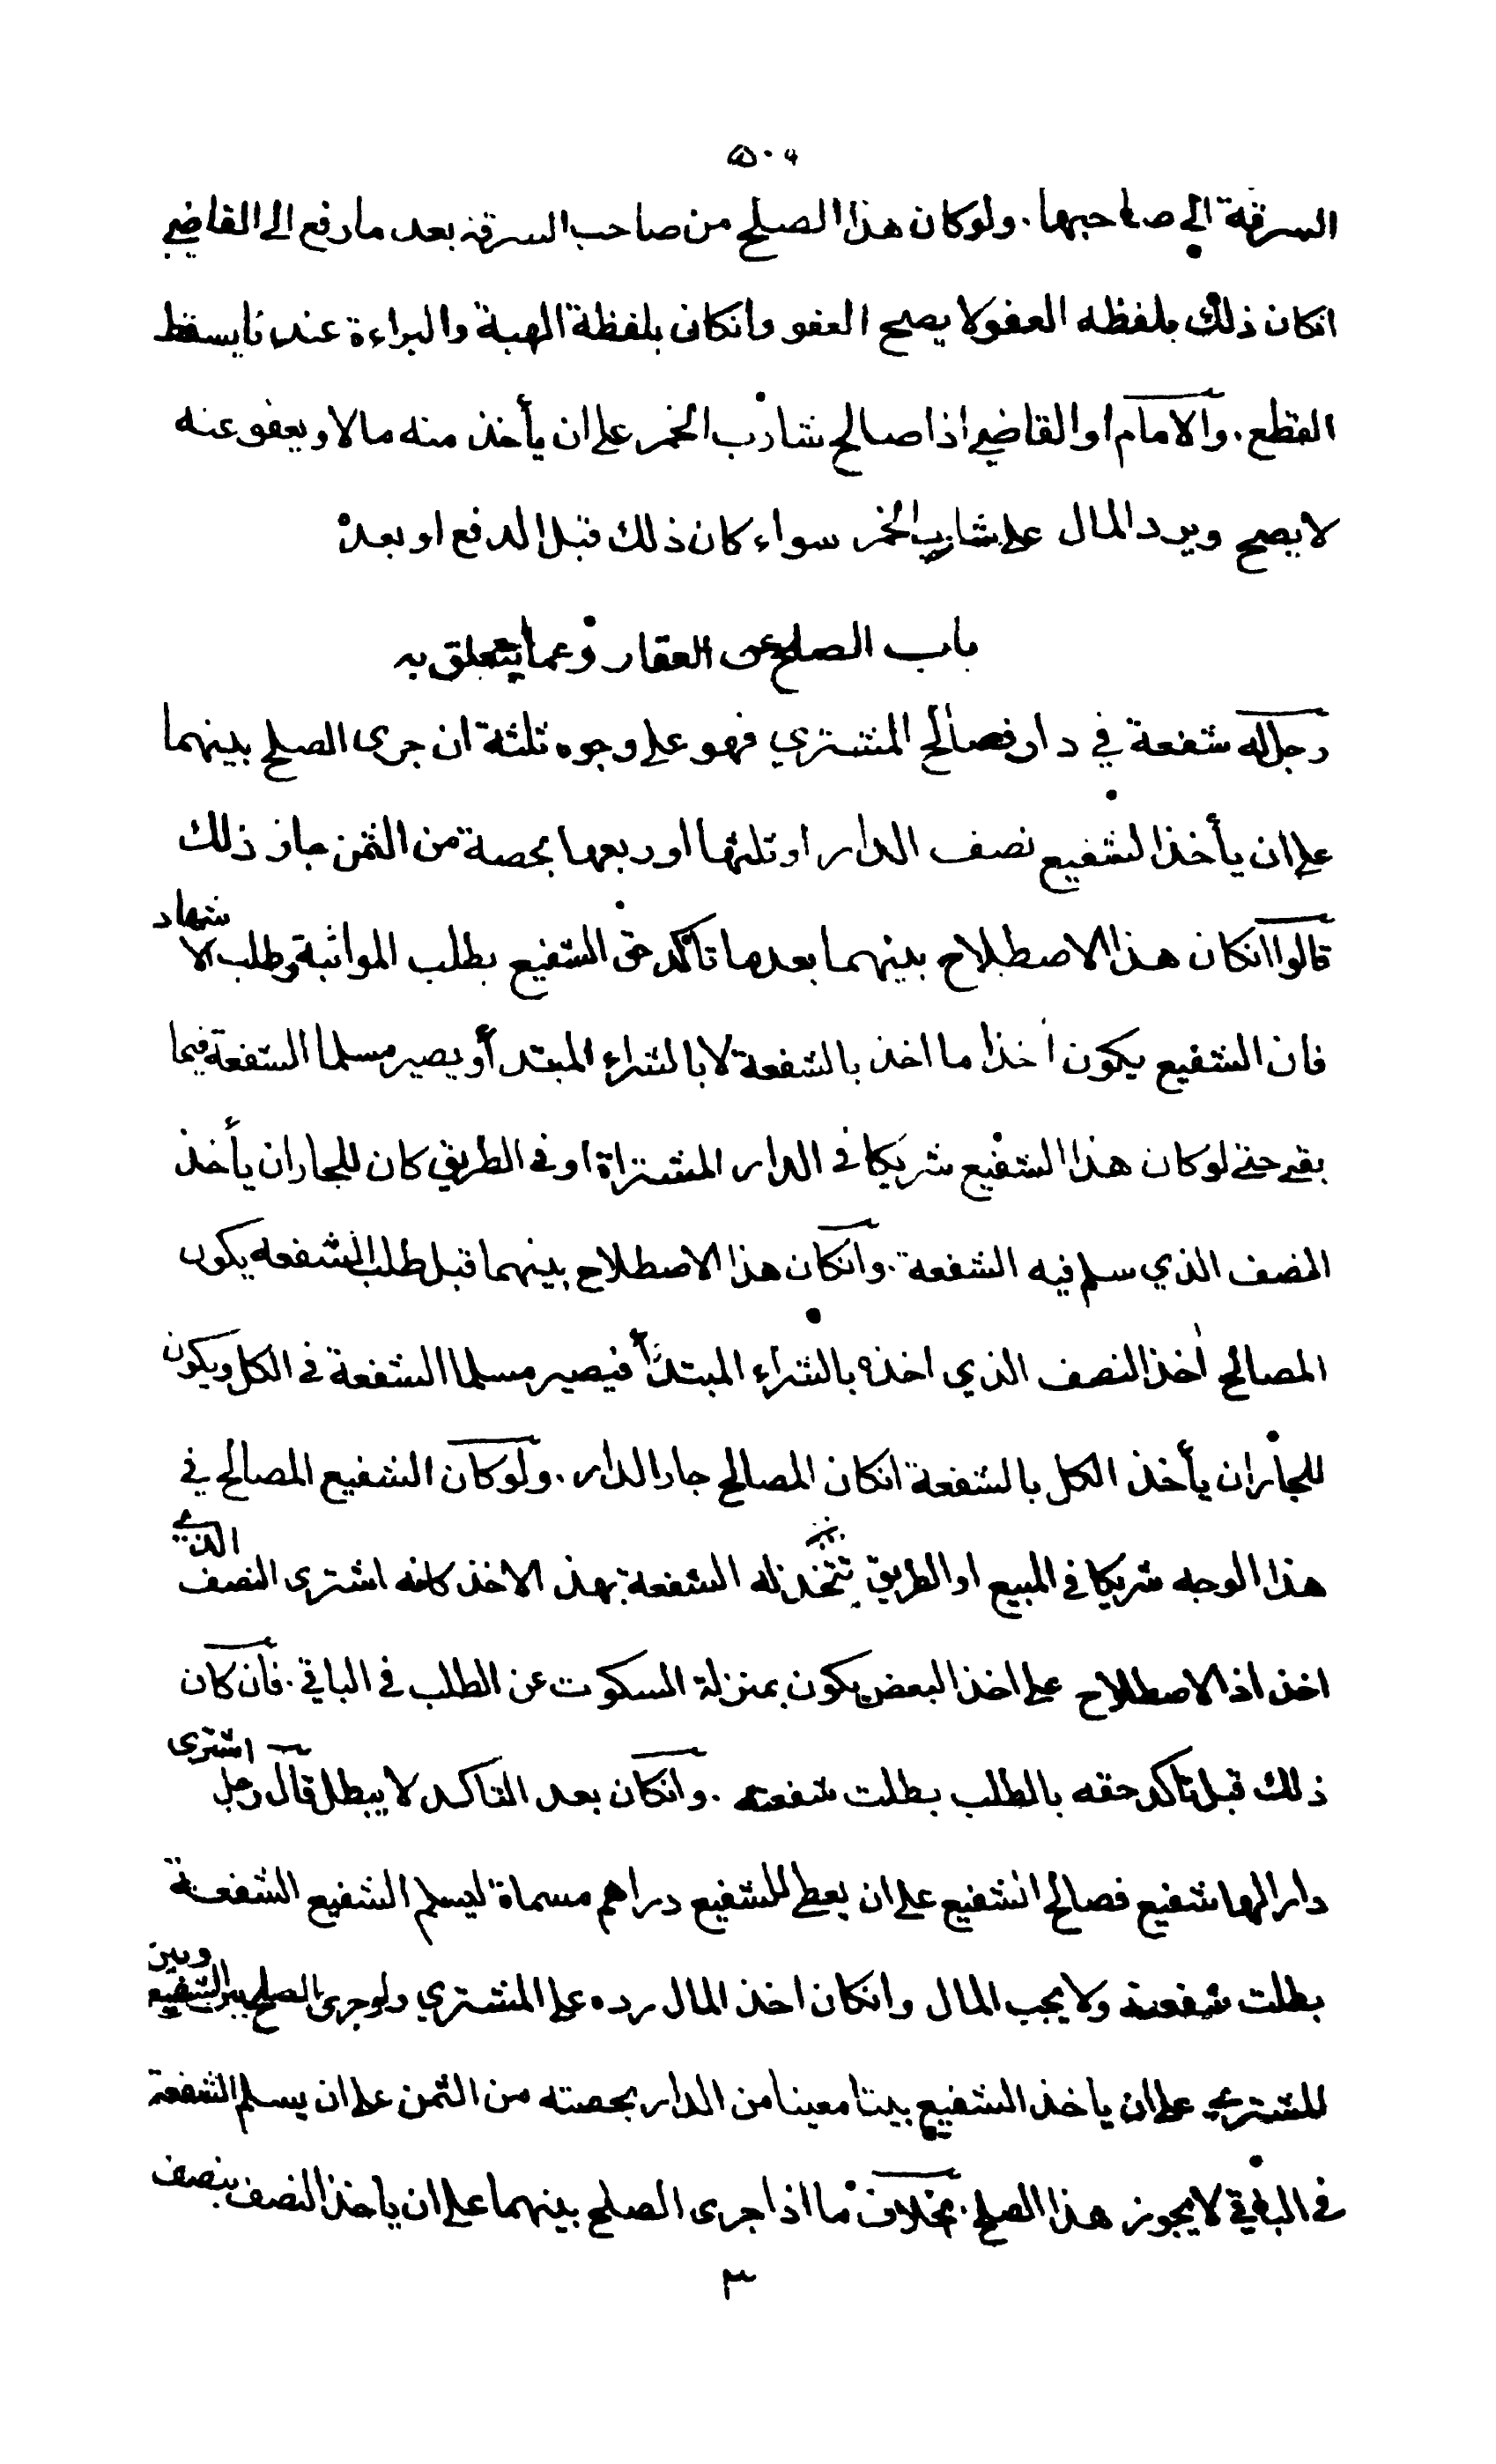 ٥٠٩
السرقة الى صاحبها . ولو كان هذا الصلح من صاحب السرقة بعد ما رفع الى القاضي
انكان ذلك بلفظه العفو لا يصح العفو وانكان بلفظة الهبة والبراءة عندنا يسقط
القطع . والامام او القاضي اذا صالح شارب الخمر على ان يأخذ منه مالا ويعفو عنه
لا يصح ويرد المال على شارب الخمر سواء كان ذلك قبل الدفع او بعده
باب الصلح عن العقار وعما يتعلق به
رجل له شفعة في دار فصالح المشتري فهو على وجوه ثلثة ان جرى الصلح بينهما
على ان يأخذ الشفيع نصف الدار او ثلثها او ربعها بحصة من الثمن جاز ذلك
قالوا انكان هذا الاصطلاح بينهما بعد ما تأكد حق الشفيع بطلب المواثبة وطلب الاشهاد
فان الشفيع يكون اخذا ما اخذ بالشفعة لا بالشراء المبتدأ ويصير مسلما الشفعة فيما
بقى حتى لو كان هذا الشفيع شريكا في الدار المشتراة او في الطريق كان للجار ان يأخذ
النصف الذي سلم فيه الشفعة . وانكان هذا الاصطلاح بينهما قبل طلب الشفعه يكون
المصالح اخذ النصف الذي اخذه بالشراء المبتدأ فيصير مسلما الشفعة في الكل ويكون
للجار ان يأخذ الكل بالشفعة انكان المصالح جار الدار . ولو كان الشفيع المصالح في
هذا الوجه شريكا في المبيع او الطريق تتخذ له الشفعة بهذ الاخذ كانه اشترى النصف الذي
اخذ اذ الاصطلاح على اخذ البعض يكون بمنزلة السكوت عن الطلب في الباقي . فان كان
ذلك قبل تاكد حقه بالطلب بطلت شفعته . وانكان بعد التاكد لا يبطل قال رجل اشترى
دار الها شفيع فصالح الشفيع على ان يعطى للشفيع دراهم مسماة ليسلم الشفيع الشفعة
بطلت شفعته ولا يجب المال وانكان اخذ المال رده على المشتري ولو جرى الصلح بين الشفيع وبين
المشتري على ان ياخذ الشفيع بيتا معينا من الدار بحصته من الثمن على ان يسلم الشفعة
في الباقي لا يجوز هذا الصلح . بخلاف ما اذا جرى الصلح بينهما على ان ياخذ النصف بنصف
٣